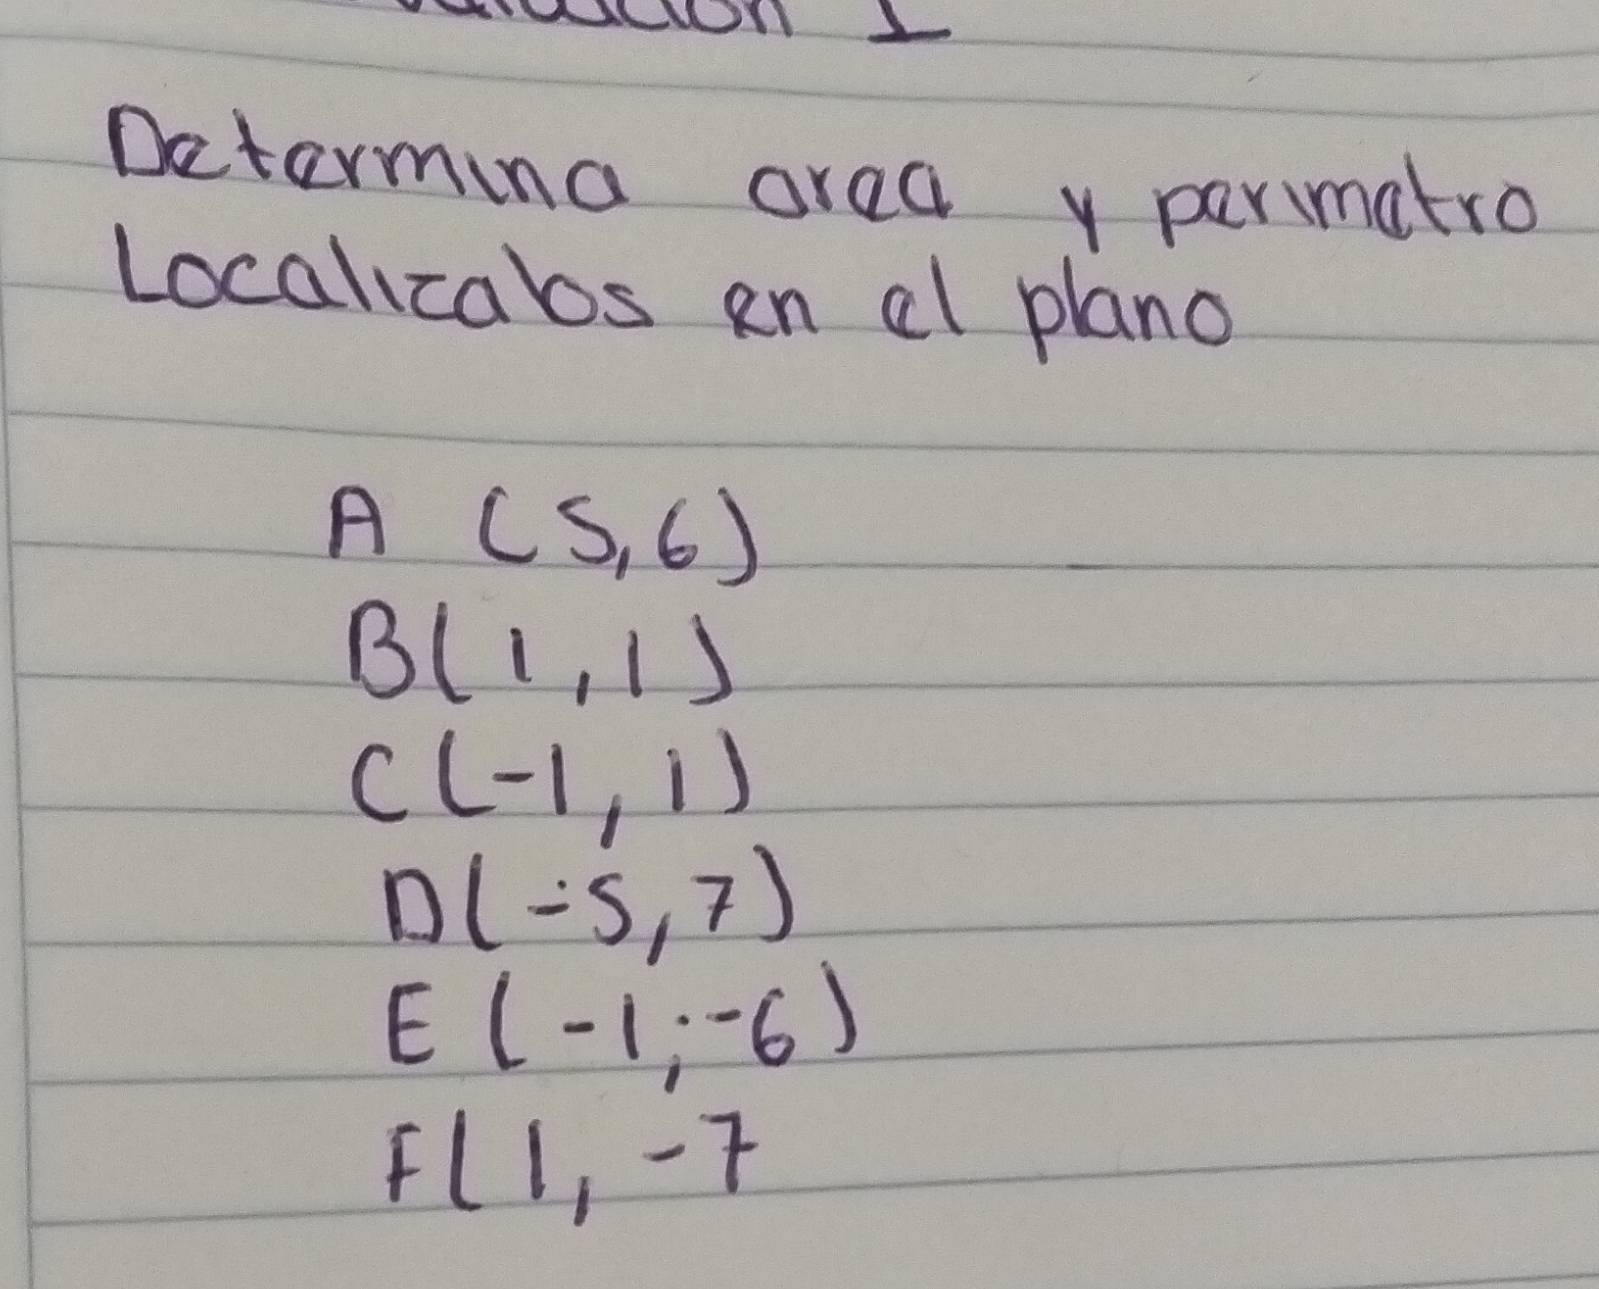 1
Determina area y perimetro
Localizalos en el plano
A (5,6)
B(1,1)
C(-1,1)
D(-5,7)
E(-1,-6)
F(1,-7